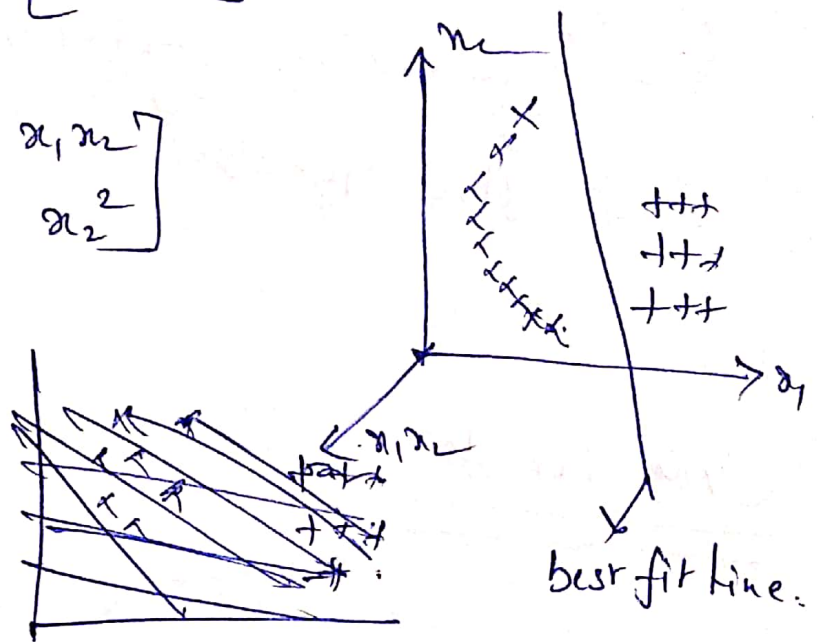 x₁x₂
x₂²
x₂
x₁
x₁x₂
best fit line.